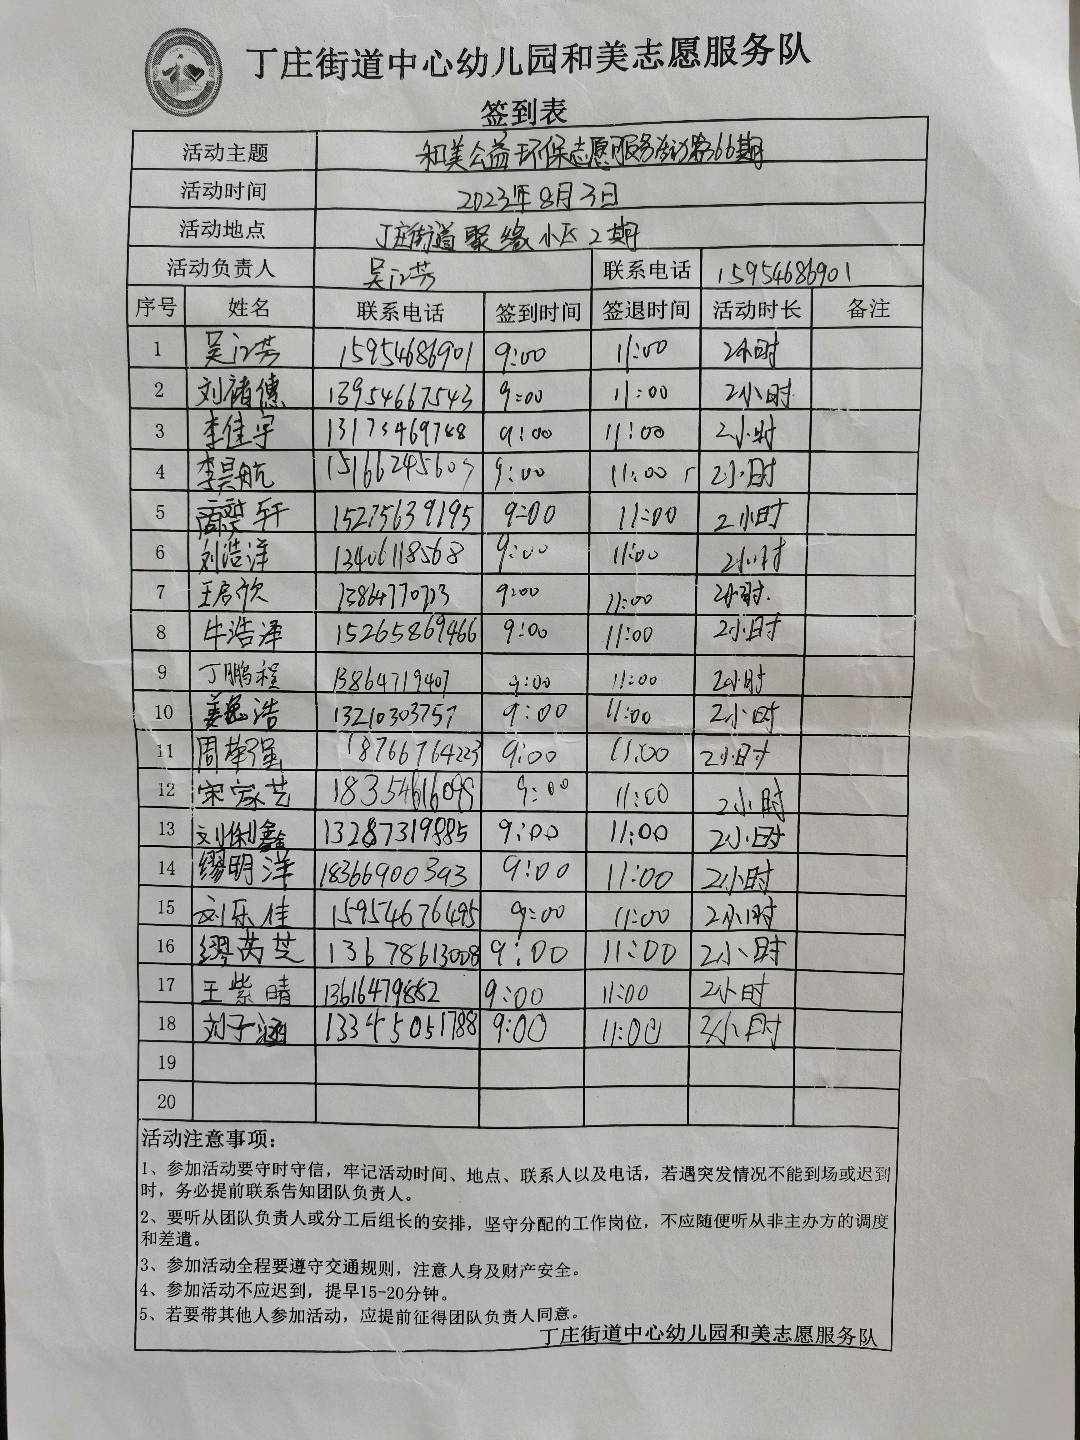 丁庄街道中心幼儿园和美志愿服务队
签到表
活动主题 和美公益环保志愿服务活动第366期
活动时间 2023年8月3日
活动地点 丁庄街道聚缘小区2期
活动负责人 吴江芳 联系电话 15954686901
序号 姓名 联系电话 签到时间 签退时间 活动时长 备注
1 吴江芳 15954686901 9:00 11:00 2小时
2 刘禇德 13954667543 9:00 11:00 2小时
3 李佳宇 13173469788 9:00 11:00 2小时
4 李昊航 15166245609 9:00 11:00 2小时
5 轩 15275639195 9:00 11:00 2小时
6 刘浩洋 13406118568 9:00 11:00 2小时
7 王启欣 9:00 11:00 2小时
8 牛浩泽 15265869466 9:00 11:00 2小时
9 丁鹏程 13864719407 9:00 11:00 2小时
10 姜逸浩 13210303757 9:00 11:00 2小时
11 周荣强 18766764223 9:00 11:00 2小时
12 宋家艺 18354616098 9:00 11:00 2小时
13 刘俐鑫 13287319885 9:00 11:00 2小时
14 缪明洋 18366900393 9:00 11:00 2小时
15 刘乐佳 15954676495 9:00 11:00 2小时
16 缪芮芝 13678613008 9:00 11:00 2小时
17 王紫晴 13616479882 9:00 11:00 2小时
18 刘子涵 13345051788 9:00 11:00 2小时
19
20
活动注意事项：
1、参加活动要守时守信，牢记活动时间、地点、联系人以及电话，若遇突发情况不能到场或迟到
时，务必提前联系告知团队负责人。
2、要听从团队负责人或分工后组长的安排，坚守分配的工作岗位，不应随便听从非主办方的调度
和差遣。
3、参加活动全程要遵守交通规则，注意人身及财产安全。
4、参加活动不应迟到，提早15-20分钟。
5、若要带其他人参加活动，应提前征得团队负责人同意。
丁庄街道中心幼儿园和美志愿服务队